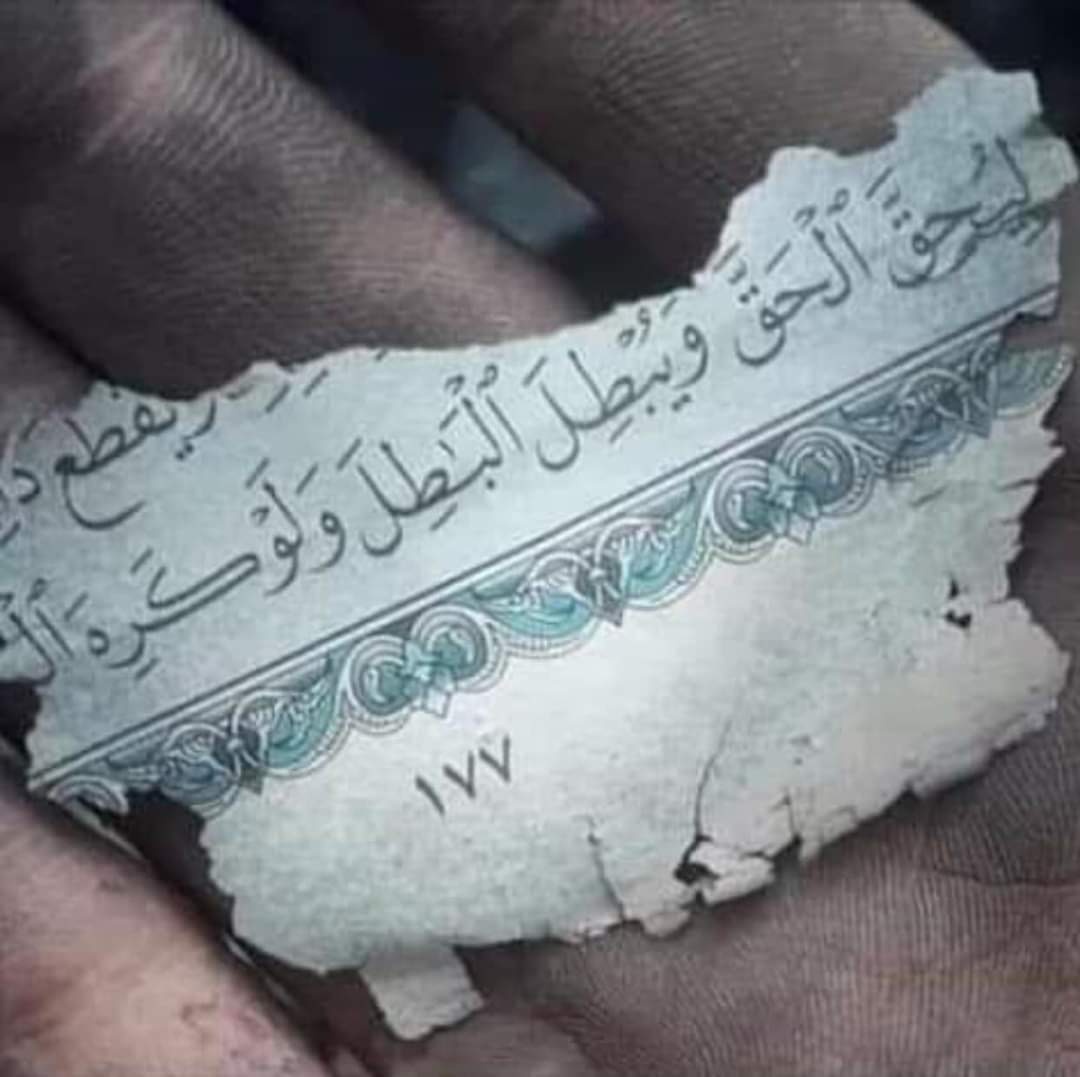 وَيَقْطَعَ
لِيُحِقَّ ٱلْحَقَّ وَيُبْطِلَ ٱلْبَٰطِلَ وَلَوْ كَرِهَ
١٧٧